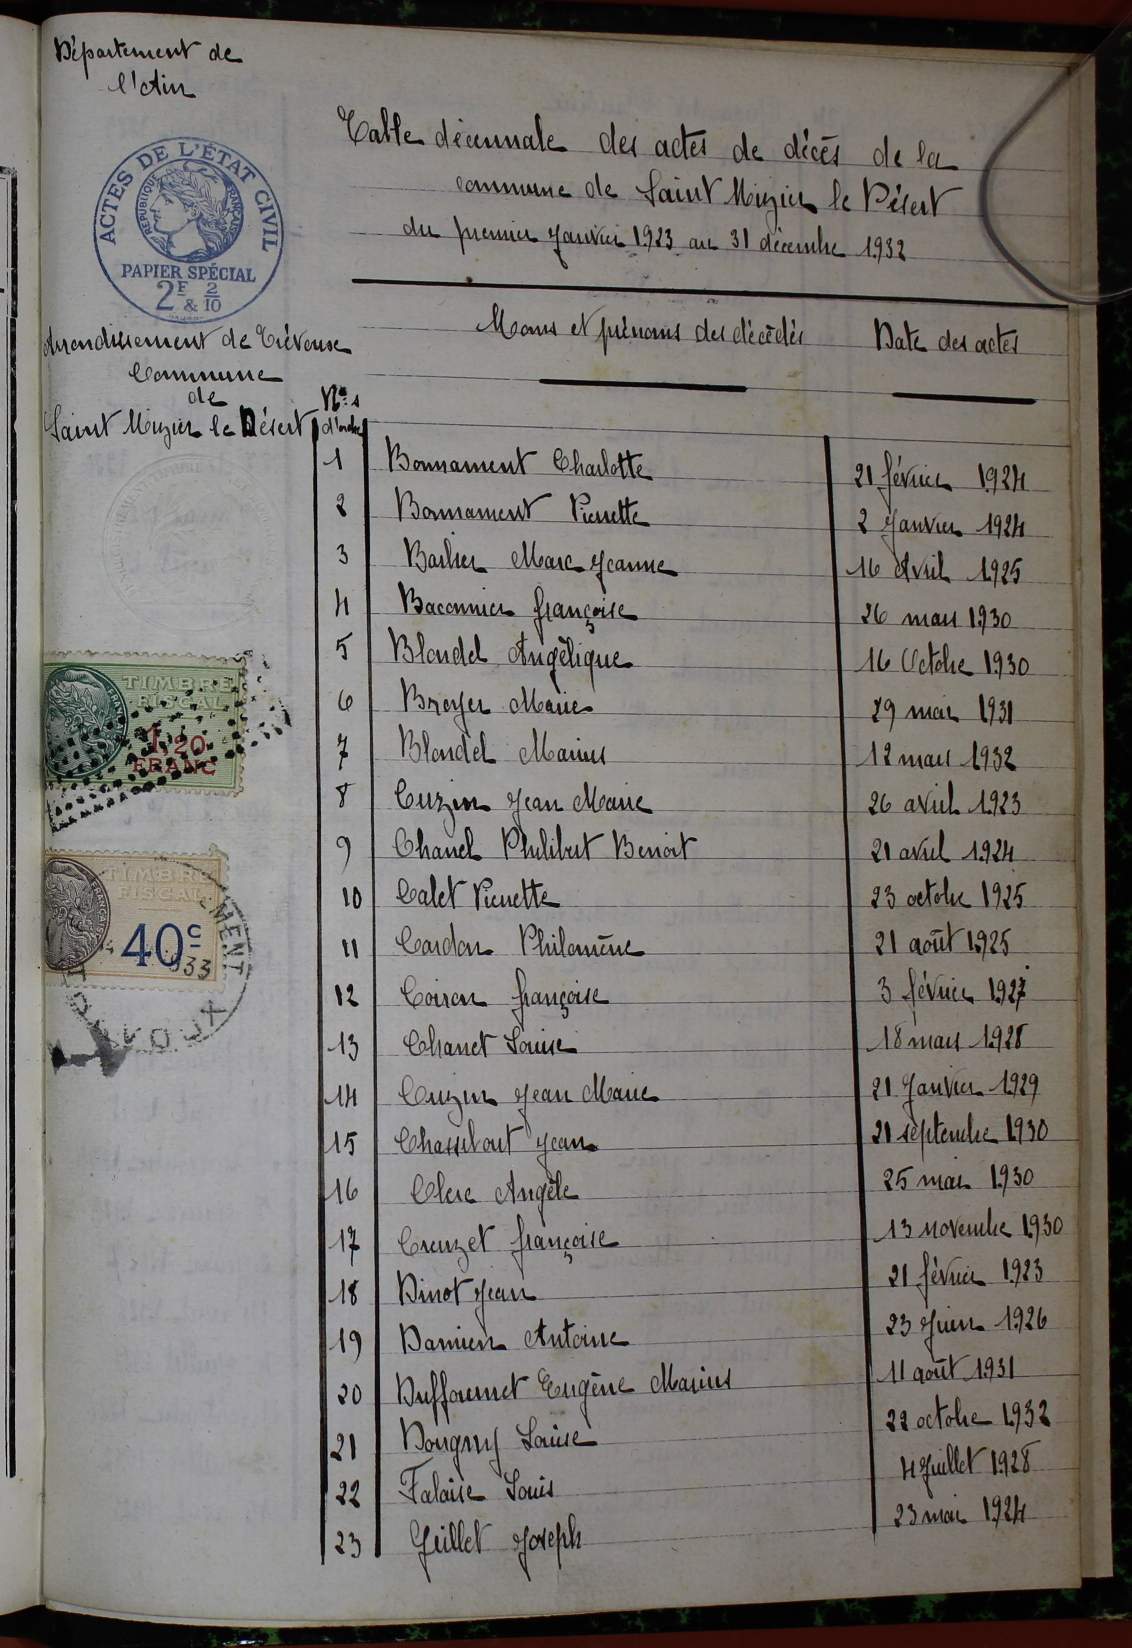 Département de
l'Ain
ACTES DE L'ÉTAT CIVIL
RÉPUBLIQUE FRANÇAISE
PAPIER SPÉCIAL
2F & 2/10
Table décennale des actes de décès de la
commune de Saint Nizier le Désert
du premier Janvier 1923 au 31 décembre 1932
Arrondissement de Trévoux
Commune
de
Saint Nizier le Désert
Nos
d'ordre
Noms et prénoms des décédés Date des actes
1 Bonnament Charlotte 21 février 1924
2 Bonnament Pierrette 2 Janvier 1924
3 Barlier Marc Jeanne 16 Avril 1925
4 Baconnier françoise 26 mars 1930
5 Blondel Angèlique 16 Octobre 1930
6 Broyer Marie 29 mai 1931
7 Blondel Marius 12 mars 1932
8 Cuzin Jean Marie 26 avril 1923
9 Chanel Philibert Benoit 21 avril 1924
10 Calet Pierrette 23 octobre 1925
11 Cardon Philomène 21 août 1925
12 Coiron françoise 3 février 1927
13 Chanet Louise 18 mars 1928
14 Cuzin Jean Marie 21 Janvier 1929
15 Chassibout Jean 21 septembre 1930
16 Clerc Angèle 25 mai 1930
17 Creuzet françoise 13 novembre 1930
18 Dinot Jean 21 février 1923
19 Damien Antoine 23 Juin 1926
20 Duffournet Eugène Marius 11 août 1931
21 Dougny Louise 22 octobre 1932
22 Falaise Louis 4 Juillet 1928
23 Guillet Joseph 23 mai 1924
TIMBRE
FISCAL
1,20
FRANC
TIMBRE
FISCAL
40c